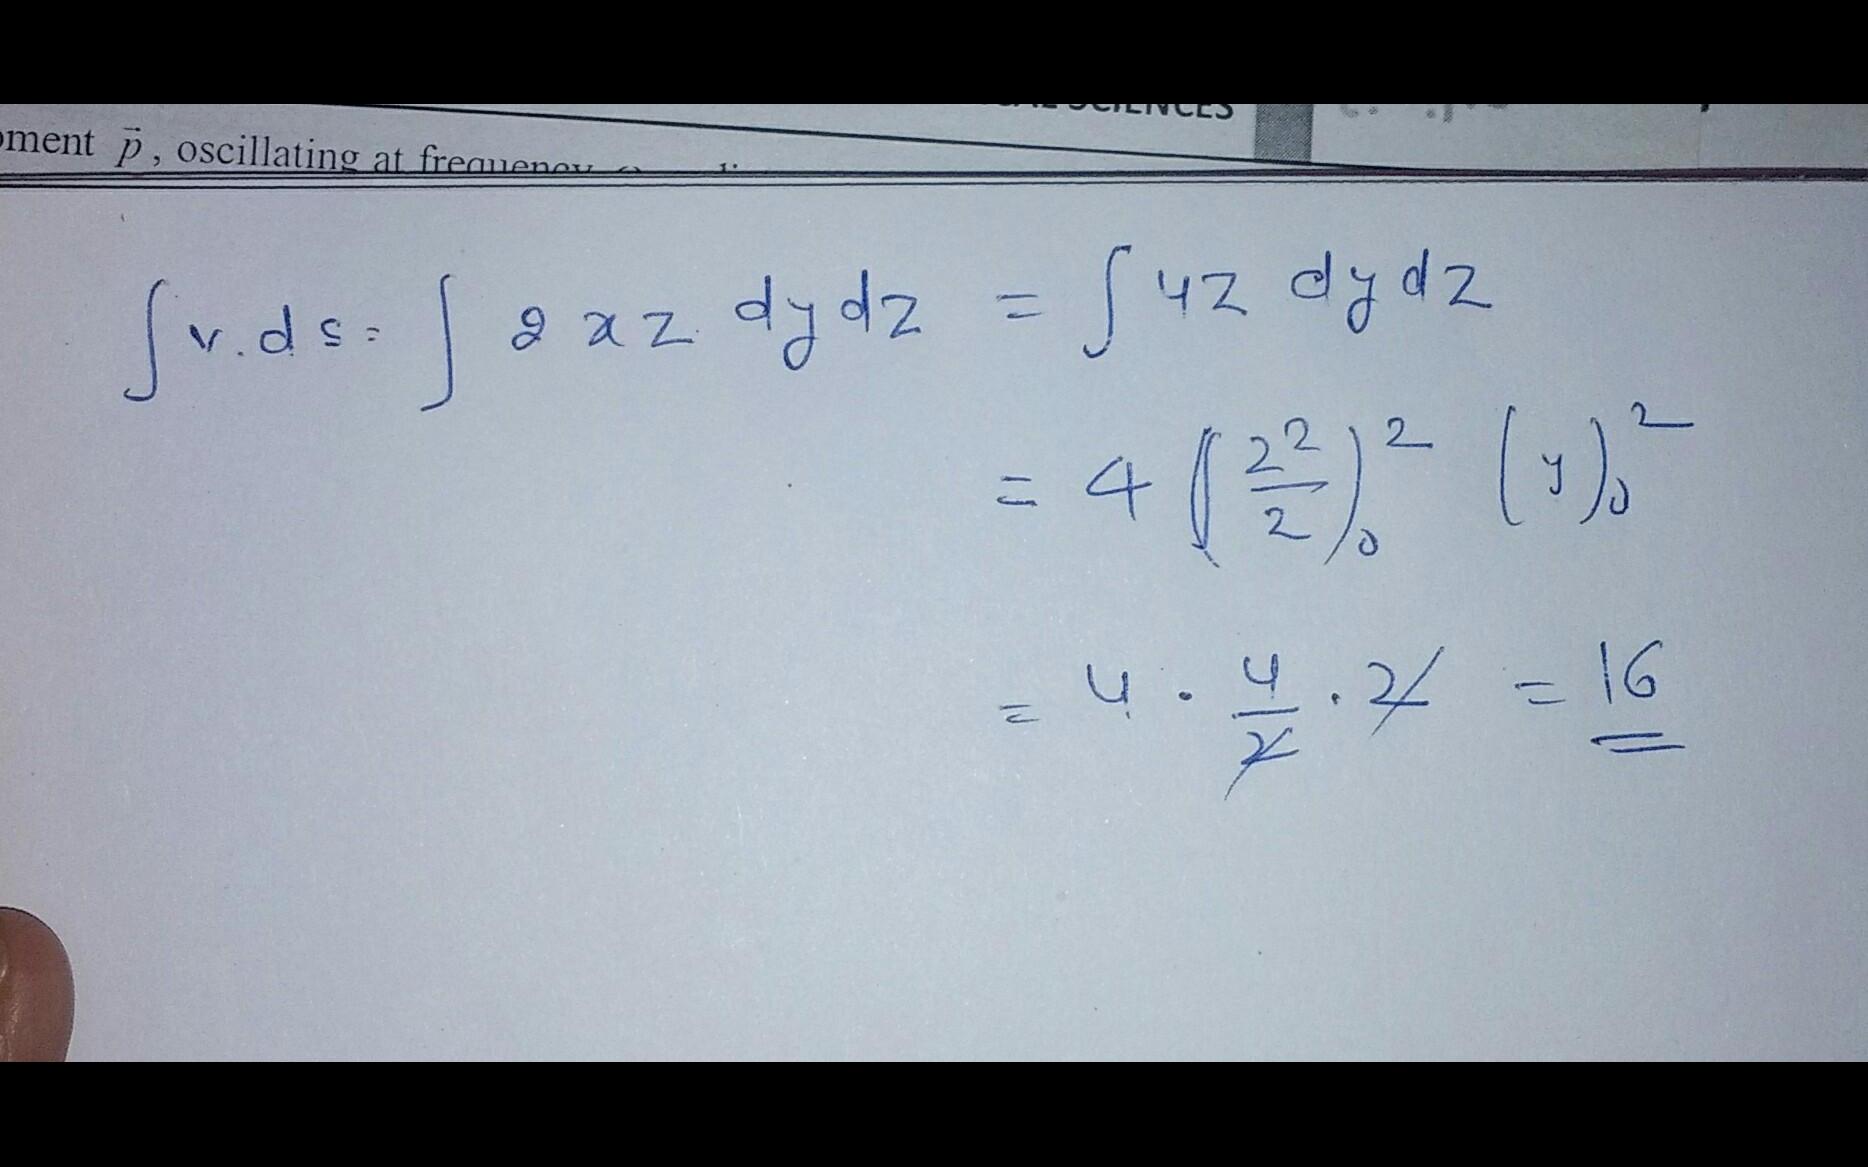 SCIENCES
oment p⃗, oscillating at frequency
∫ v.ds = ∫ 2 x z dy dz = ∫ 4z dy dz
= 4 (z²/2)₀² (y)₀²
= 4 . 4/2 . 2 = 16